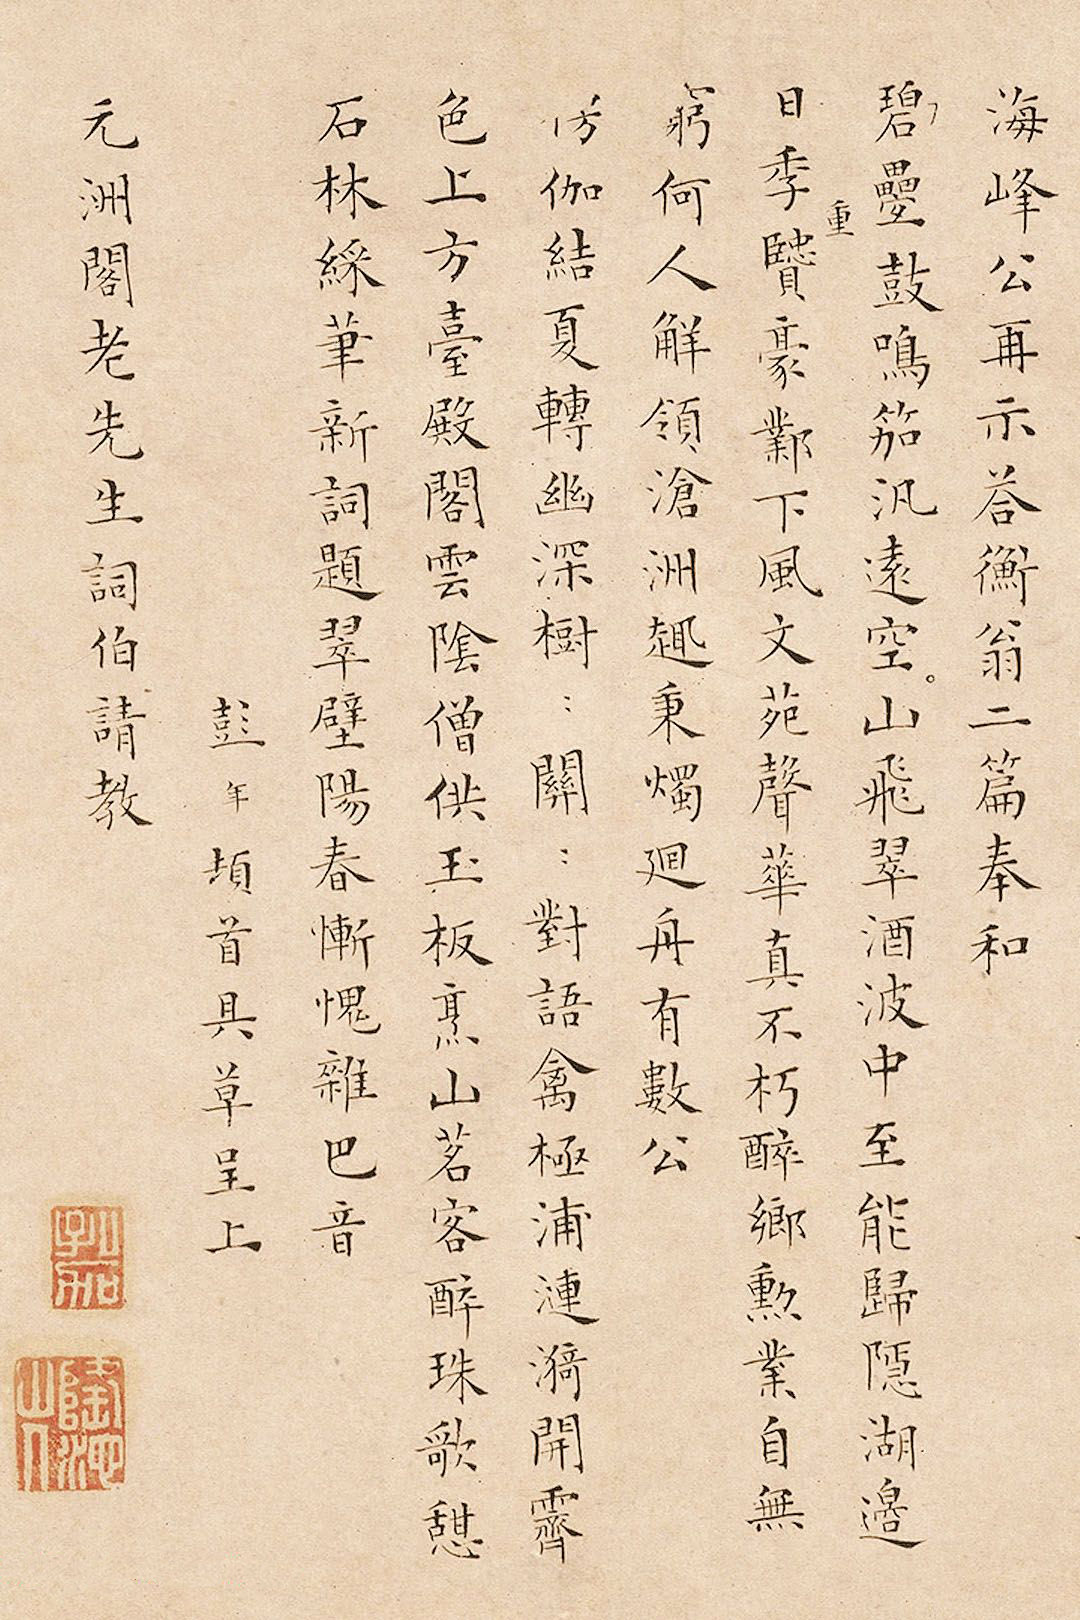 海峰公再示荅衡翁二篇奉和
碧疊鼓鳴笳汎遠空山飛翠洒波中至能歸隱湖邉
重
日季贒豪鄴下風文苑聲華真不朽醉鄉勲業自無
窮何人解領滄洲趣秉燭廻舟有數公
伽結夏轉幽深樹：關：對語禽極浦漣漪開霽
色上方臺殿閣雲陰僧供玉板烹山茗客醉珠歌憇
石林綵筆新詞題翠壁陽春慚愧雜巴音
彭年頓首具草呈上
元洲閣老先生詞伯請教